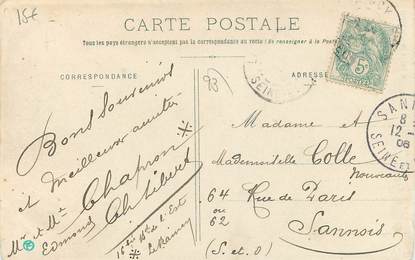 15€
CARTE POSTALE
Tous les pays étrangers n'acceptent pas la correspondance au verso (Se renseigner à la Poste)
CORRESPONDANCE
93
ADRESSE
5c
SANNOIS
8
12
08
SEINE ET
SEINE
Bons Souvenirs
et meilleures amitiés
Mr et Mme Chapron
Edmond
16 bis de l'Est
Le Raincy
Madame et
Mademoiselle Colle
Nouveautés
64 Rue de Paris
ou
62
Sannois
(S. et O)